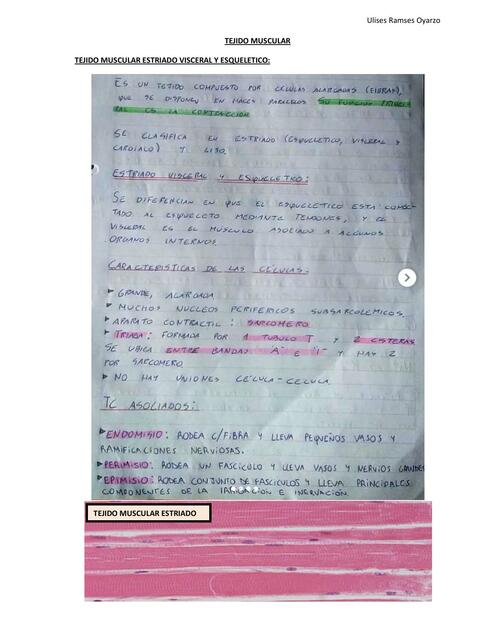 Ulises Ramses Oyarzo
TEJIDO MUSCULAR
TEJIDO MUSCULAR ESTRIADO VISCERAL Y ESQUELETICO:
ES UN TEJIDO COMPUESTO POR CELULAS ALARGADAS (FIBRAS),
QUE SE DISPONEN EN HACES PARALELOS. SU FUNCIÓN PRINCI-
PAL ES LA CONTRACCIÓN
SE CLASIFICA EN ESTRIADO (ESQUELETICO, VISCERAL Y
CARDIACO) Y LISO.
ESTRIADO VISCERAL Y ESQUELETICO:
SE DIFERENCIAN EN QUE EL ESQUELETICO ESTA CONEC-
TADO AL ESQUELETO MEDIANTE TENDONES, Y EL
VISCERAL ES EL MUSCULO ASOCIADO A ALGUNOS
ORGANOS INTERNOS.
CARACTERISTICAS DE LAS CÉLULAS:
GRANDE, ALARGADA
MUCHOS NUCLEOS PERIFERICOS SUBSARCOLEMICOS.
APARATO CONTRACTIL: SARCOMERO
TRIADA: FORMADA POR 1 TUBULO T Y 2 CISTERAS
SE UBICA ENTRE BANDAS "A" E "I" Y HAY 2
POR SARCOMERO
NO HAY UNIONES CÉLULA-CELULA
TC ASOCIADOS:
ENDOMISIO: RODEA C/FIBRA Y LLEVA PEQUEÑOS VASOS Y
RAMIFICACIONES NERVIOSAS.
PERIMISIO: RODEA UN FASCICULO Y LLEVA VASOS Y NERVIOS GRANDES
EPIMISIO: RODEA CONJUNTO DE FASCICULOS Y LLEVA PRINCIPALES
COMPONENTES DE LA IRRIGACION E INERVACIÓN.
TEJIDO MUSCULAR ESTRIADO